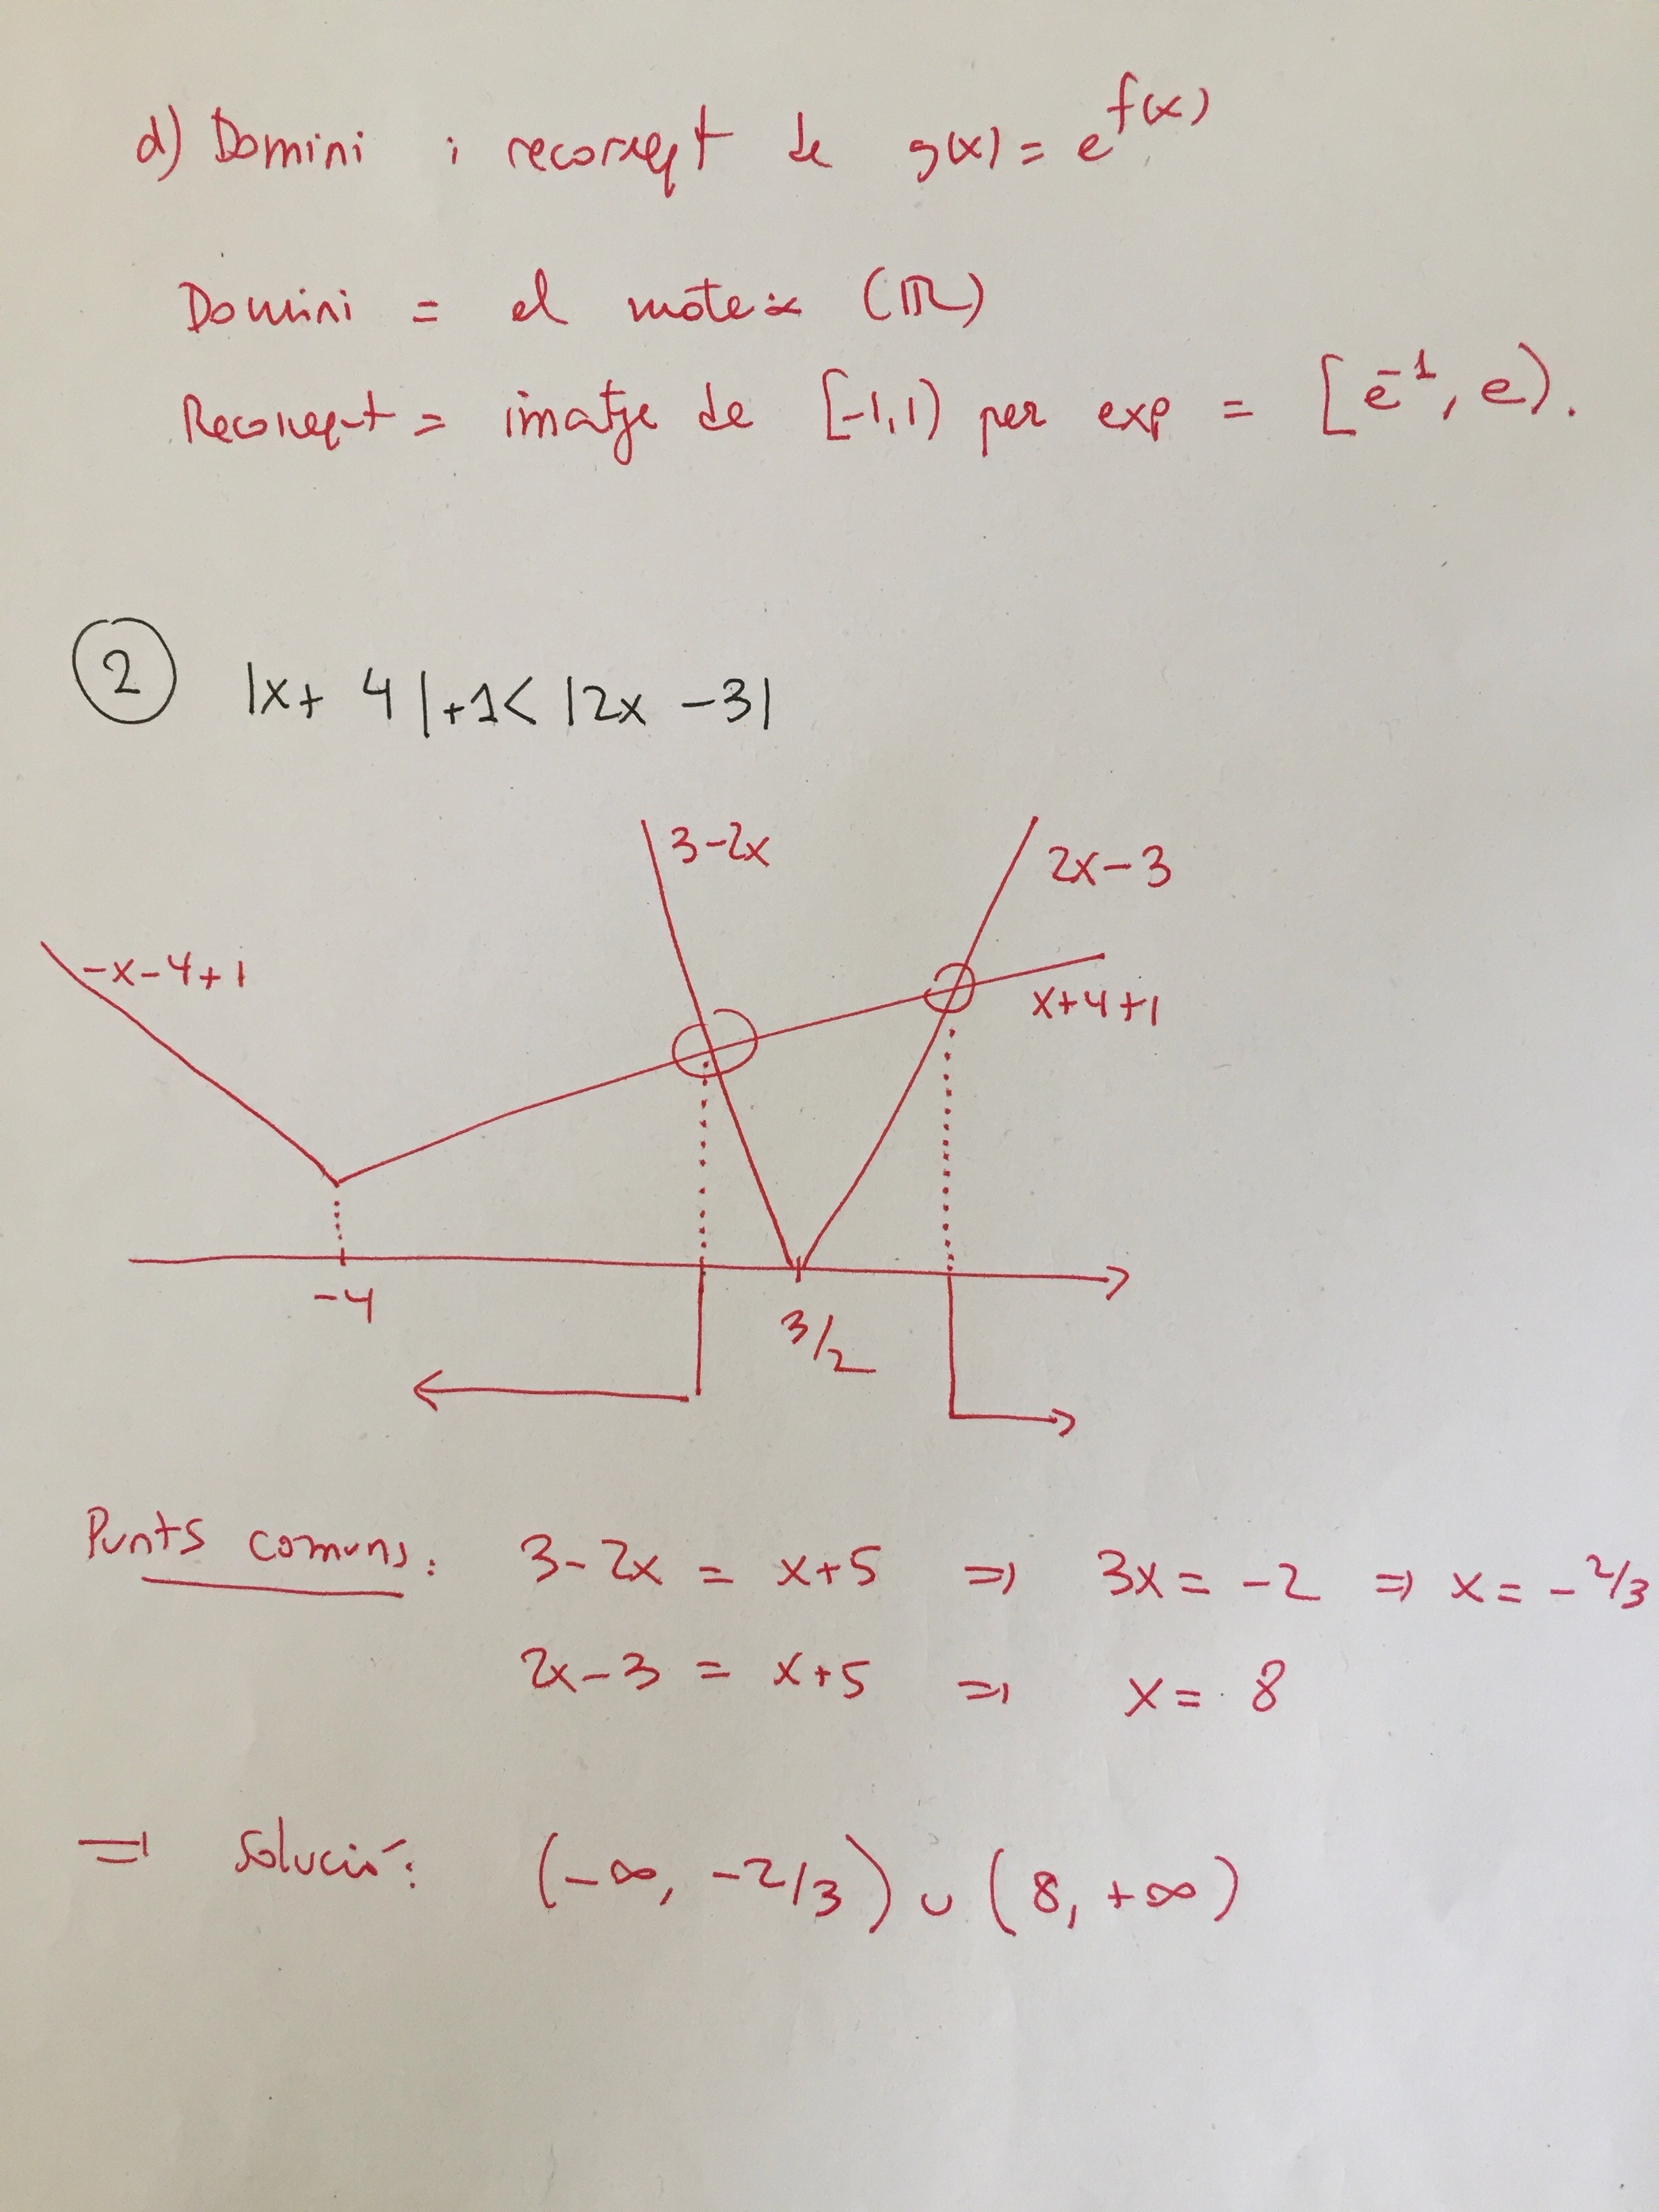 d) Domini i recorregut de g(x) = e^f(x)
Domini = el mateix (ℝ)
Recorregut = imatge de [-1,1) per exp = [e^-1, e).
2 |x+4|+1 < |2x-3|
3-2x
2x-3
-x-4+1
x+4+1
-4
3/2
Punts comuns: 3-2x = x+5 ⇒ 3x = -2 ⇒ x = -2/3
2x-3 = x+5 ⇒ x = 8
⇒ Solució: (-∞, -2/3) ∪ (8, +∞)